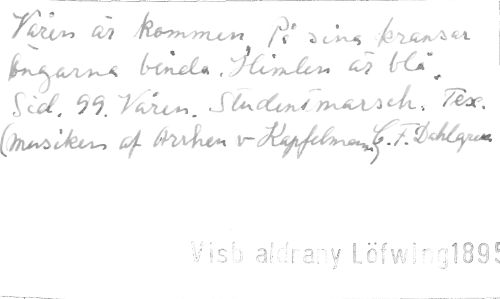 Våren är kommen, På sina kransar
ängarna binda. Himlen är blå.
Sid. 99. Våren. Studentmarsch. Tex.
(musiken af Arrhen v Kapfelmann) C. F. Dahlgren
Visb aldrany Löfwing1895